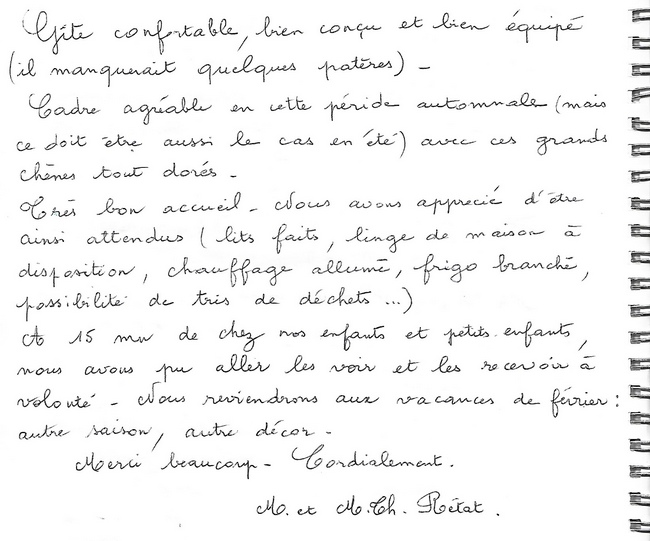 Gîte confortable, bien conçu et bien équipé
(il manquerait quelques patères) -
Cadre agréable en cette péride automnale (mais
ce doit être aussi le cas en été) avec ces grands
chênes tout dorés -
Très bon accueil - Nous avons apprecié d'être
ainsi attendus (lits faits, linge de maison à
disposition, chauffage allumé, frigo branché,
possibilité de tris de déchets ...)
A 15 mn de chez nos enfants et petits-enfants,
nous avons pu aller les voir et les recevoir à
volonté - Nous reviendrons aux vacances de février :
autre saison, autre décor -
Merci beaucoup - Cordialement.
M. et M.Th. Rétat.